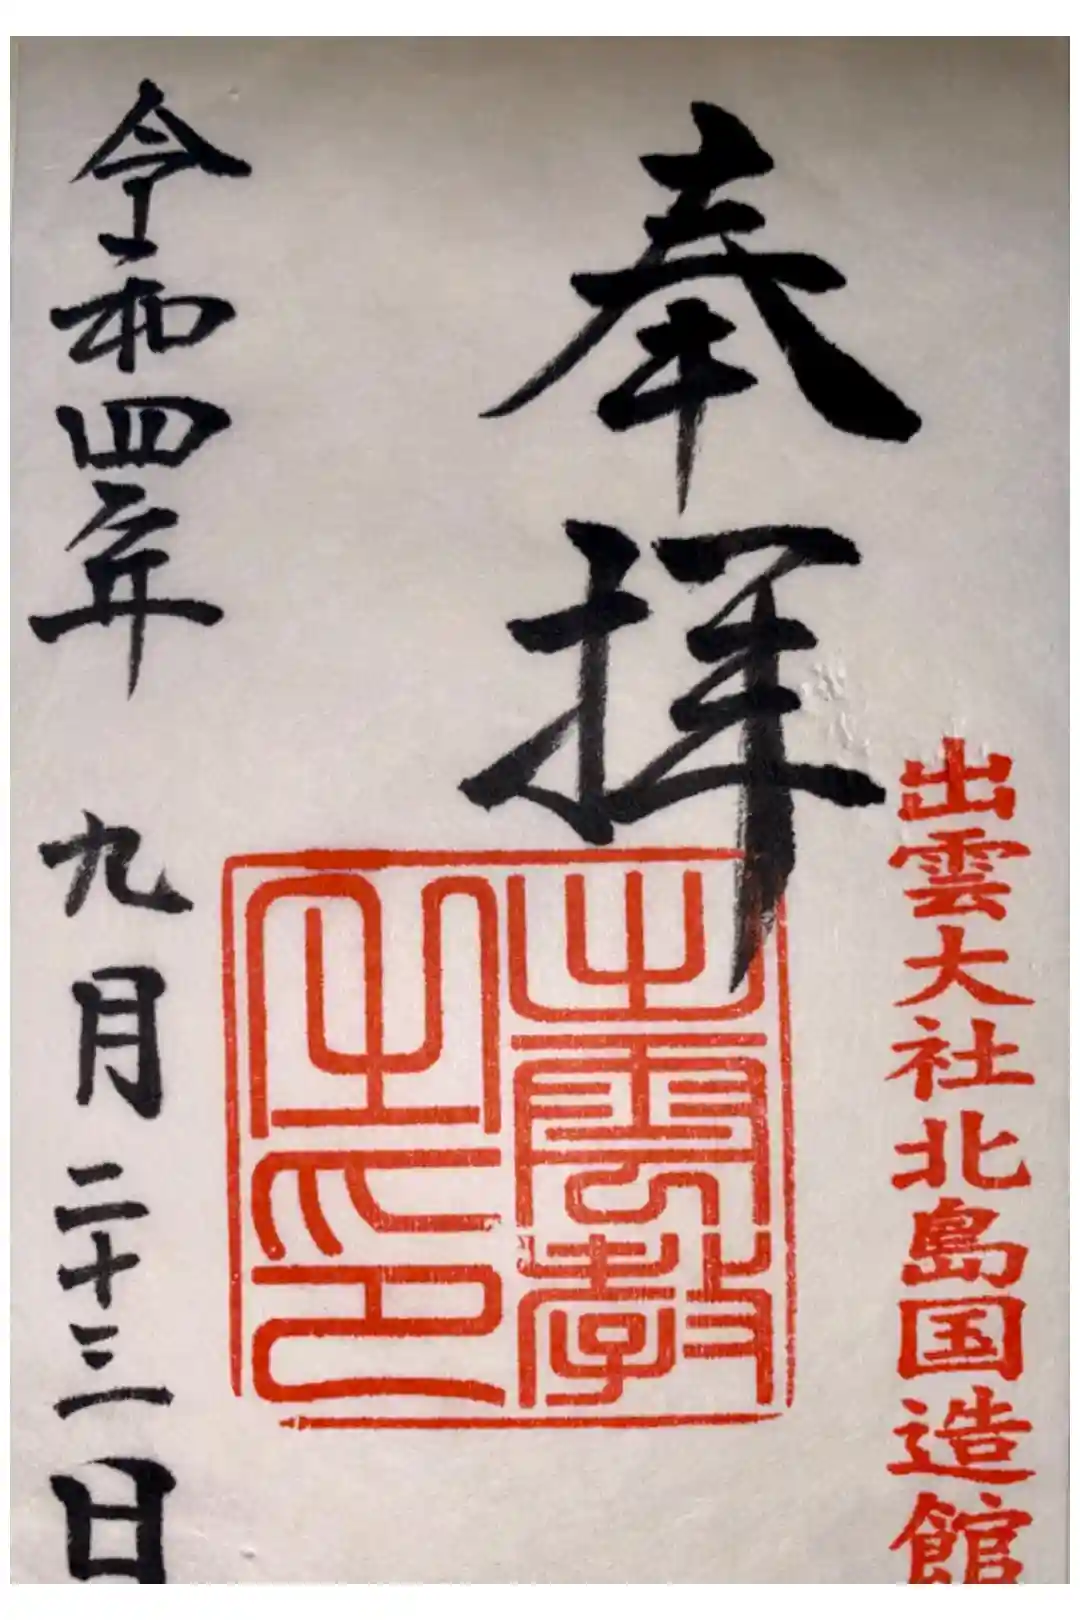 奉拝
出雲大社北島国造館
出雲教
之印
令和四年 九月 二十三日